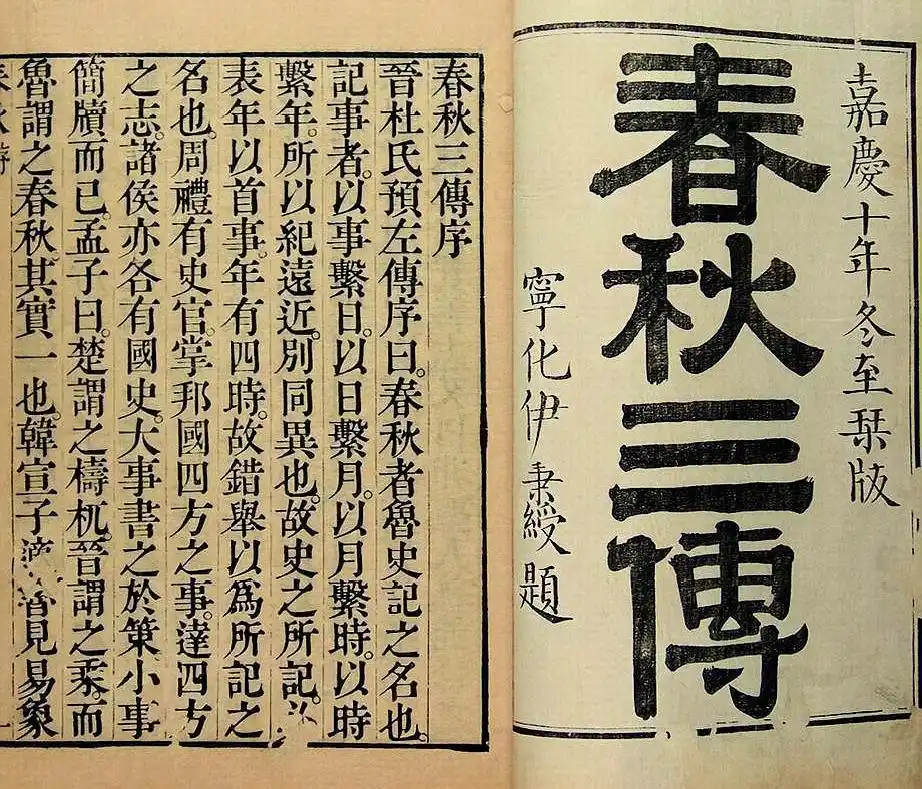 嘉慶十年冬至栞版
春秋三傳
寧化伊秉綬題
春秋三傳序
晉杜氏預左傳序曰。春秋者魯史記之名也。
記事者。以事繫日。以日繫月。以月繫時。以時
繫年。所以紀遠近。別同異也。故史之所記。必
表年以首事。年有四時。故錯舉以爲所記之
名也。周禮有史官。掌邦國四方之事。達四方
之志。諸侯亦各有國史。大事書之於策。小事
簡牘而已。孟子曰。楚謂之檮杌。晉謂之乘。而
魯謂之春秋。其實一也。韓宣子適魯見易象